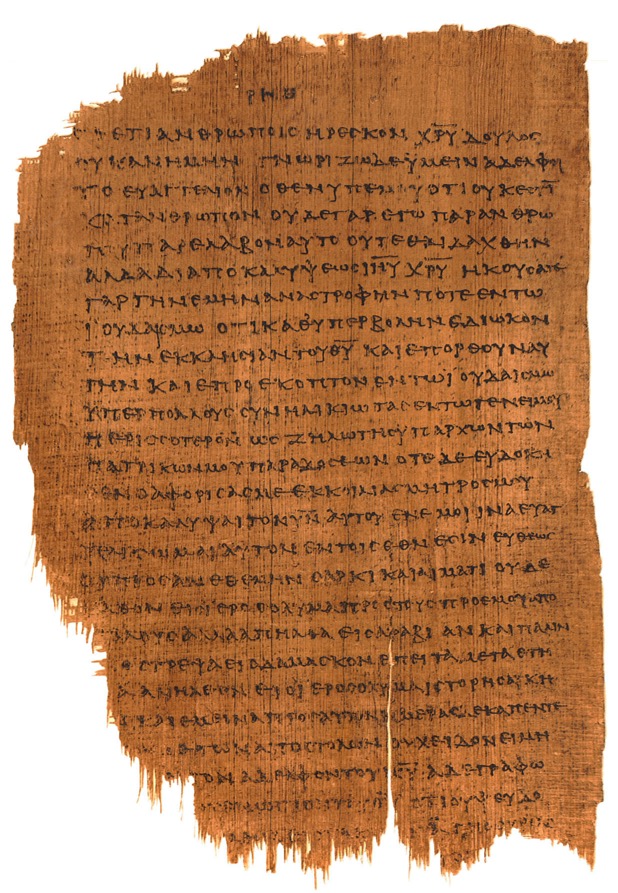 ΕΤΙ ΑΝΘΡΩΠΟΙϹ ΗΡΕϹΚΟΝ Χ̅Ρ̅Υ̅ ΔΟΥΛΟϹ
ΟΥΚ ΑΝ ΗΜΗΝ ΓΝΩΡΙΖΩ ΔΕ ΥΜΕΙΝ ΑΔΕΛΦΟΙ
ΤΟ ΕΥΑΓΓΕΛΙΟΝ ΟΤΙ ΟΥΚ ΕϹΤΙ̅
ΚΑΤ ΑΝΘΡΩΠΟΝ ΟΥΔΕ ΓΑΡ ΕΓΩ ΠΑΡ ΑΝΘΡΩ
ΠΟΥ ΠΑΡΕΛΑΒΟΝ ΑΥΤΟ ΟΥΤΕ ΕΔΙΔΑΧΘΗΝ
ΑΛΛΑ ΔΙ ΑΠΟΚΑΛΥΨΕΩϹ Ι̅Η̅Υ̅ Χ̅Ρ̅Υ̅ ΗΚΟΥϹΑΤΕ
ΓΑΡ ΤΗΝ ΕΜΗΝ ΑΝΑϹΤΡΟΦΗΝ ΠΟΤΕ ΕΝ ΤΩ
ΙΟΥΔΑΙϹΜΩ ΟΤΙ ΚΑΘ ΥΠΕΡΒΟΛΗΝ ΕΔΙΩΚΟΝ
ΤΗΝ ΕΚΚΛΗϹΙΑΝ ΤΟΥ Θ̅Υ̅ ΚΑΙ ΕΠΟΡΘΟΥΝ ΑΥ
ΤΗΝ ΚΑΙ ΠΡΟΕΚΟΠΤΟΝ ΕΝ ΤΩ ΙΟΥΔΑΙϹΜΩ
ΥΠΕΡ ΠΟΛΛΟΥϹ ϹΥΝΗΛΙΚΙΩΤΑϹ ΕΝ ΤΩ ΓΕΝΕΙ ΜΟΥ
ΠΕΡΙϹϹΟΤΕΡΩϹ ΖΗΛΩΤΗϹ ΥΠΑΡΧΩΝ ΤΩΝ
ΠΑΤΡΙΚΩΝ ΜΟΥ ΠΑΡΑΔΟϹΕΩΝ ΟΤΕ ΔΕ ΕΥΔΟΚΗ
ϹΕΝ Ο ΑΦΟΡΙϹΑϹ ΜΕ ΕΚ ΚΟΙΛΙΑϹ ΜΗΤΡΟϹ ΜΟΥ
ΑΠΟΚΑΛΥΨΑΙ ΤΟΝ Υ̅Ν̅ ΑΥΤΟΥ ΕΝ ΕΜΟΙ ΙΝΑ ΕΥΑΓ
ΓΕΛΙΖΩΜΑΙ ΑΥΤΟΝ ΕΝ ΤΟΙϹ ΕΘΝΕϹΙΝ ΕΥΘΕΩϹ
ΟΥ ΠΡΟϹΑΝΕΘΕΜΗΝ ϹΑΡΚΙ ΚΑΙ ΑΙΜΑΤΙ ΟΥΔΕ
ΗΛΘΟΝ ΕΙϹ ΙΕΡΟϹΟΛΥΜΑ ΠΡΟϹ ΤΟΥϹ ΠΡΟ ΕΜΟΥ ΑΠΟ
ϹΤΟΛΟΥϹ ΑΛΛΑ ΑΠΗΛΘΑ ΕΙϹ ΑΡΑΒΙΑΝ ΚΑΙ ΠΑΛΙΝ
ΥΠΕϹΤΡΕΨΑ ΕΙϹ ΔΑΜΑϹΚΟΝ ΕΠΕΙΤΑ ΜΕΤΑ ΕΤΗ
ΑΝΗΛΘΟΝ ΕΙϹ ΙΕΡΟϹΟΛΥΜΑ ΙϹΤΟΡΗϹΑΙ ΚΗ
ΦΑΝ ΚΑΙ ΕΜΕΙΝΑ ΠΡΟϹ ΑΥΤΟΝ ΗΜΕΡΑϹ ΔΕΚΑΠΕΝΤΕ
ΑΠΟϹΤΟΛΩΝ ΟΥΧ ΕΙΔΟΝ ΕΙ ΜΗ
ΤΟΝ ΑΔΕΛΦΟΝ ΤΟΥ Κ̅Υ̅ Α ΔΕ ΓΡΑΦΩ
ΟΤΙ ΟΥ ΨΕΥΔΟ